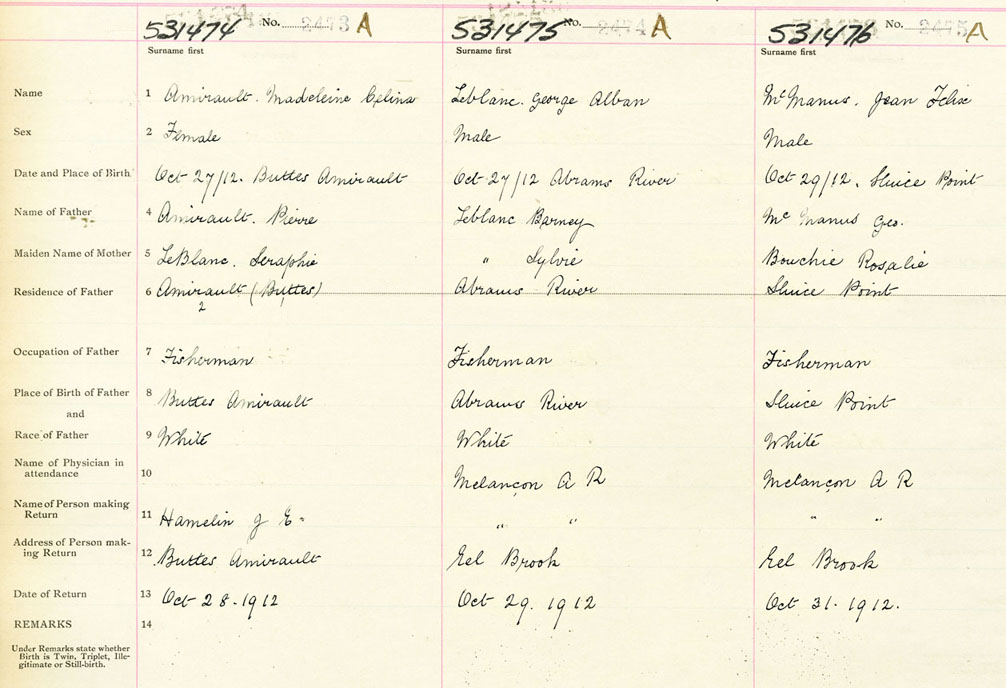 531474 No. 2473 A 531475 No. 2474 A 531476 No. 2475 A
Surname first Surname first Surname first
Name 1 Amirault. Madeleine Celina Leblanc. George Alban McManus. Jean Felix
Sex 2 Female Male Male
Date and Place of Birth Oct 27/12. Buttes Amirault Oct 27/12 Abrams River Oct 29/12. Sluice Point
Name of Father 4 Amirault. Pierre Leblanc Barney Mc Manus Geo.
Maiden Name of Mother 5 LeBlanc. Seraphie " Sylvie Bouchie Rosalie
Residence of Father 6 Amirault (Buttes) Abrams River Sluice Point
2
Occupation of Father 7 Fisherman Fisherman Fisherman
Place of Birth of Father 8 Buttes Amirault Abrams River Sluice Point
and
Race of Father 9 White White White
Name of Physician in
attendance 10 Melançon A R Melançon A R
Name of Person making
Return 11 Hamelin J E. " " " "
Address of Person mak-
ing Return 12 Buttes Amirault Eel Brook Eel Brook
Date of Return 13 Oct 28-1912 Oct 29. 1912 Oct 31-1912.
REMARKS 14
Under Remarks state whether
Birth is Twin, Triplet, Ille-
gitimate or Still-birth.